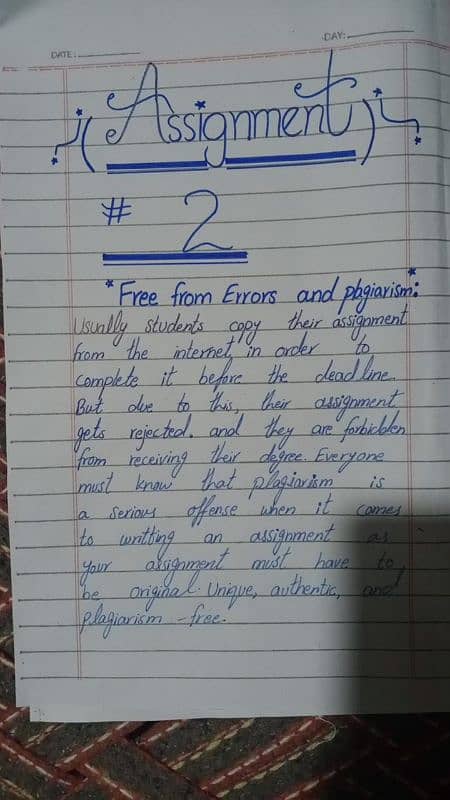 DATE:
DAY:
Assignment
# 2
Free from Errors and plagiarism:
Usually students copy their assignment
from the internet, in order to
complete it before the deadline.
But due to this, their assignment
gets rejected. and they are forbidden
from receiving their degree. Everyone
must know that plagiarism is
a serious offense when it comes
to writting an assignment as
your assignment must have to
be original. Unique, authentic, and
plagiarism-free.